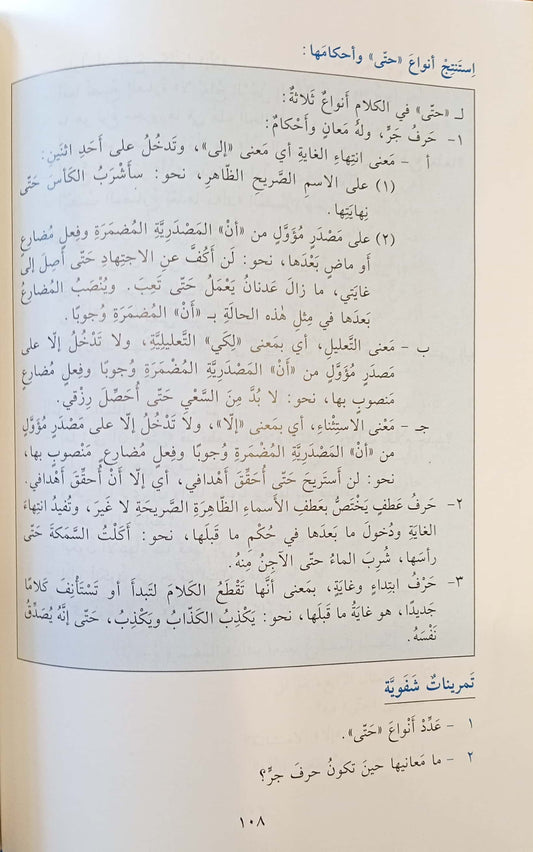 اِستَنتِجْ أنواعَ «حتّى» وأحكامَها :
لـ «حتّى» في الكلامِ أَنواعٌ ثَلاثةٌ :
١- حَرفُ جَرٍّ، ولهُ مَعانٍ وأحْكامٌ :
أ - مَعنى انْتِهاءِ الغايةِ أي مَعنى «إلى»، وتَدخُلُ على أحَدِ اثنَيْنِ :
(١) على الاسمِ الصَّريحِ الظّاهرِ، نحو : سأَشْرَبُ الكَأسَ حَتّى
نِهايَتِها.
(٢) على مَصْدَرٍ مُؤَوَّلٍ من «أنْ» المَصْدَرِيَّةِ المُضمَرَةِ وفِعلٍ مُضارِعٍ
أو ماضٍ بَعْدَها، نحو : لَن أكُفَّ عنِ الاجتِهادِ حَتّى أصِلَ إلى
غايَتي، ما زالَ عَدنانُ يَعْمَلُ حَتّى تَعِبَ. ويُنْصَبُ المُضارعُ
بَعدَها في مِثلِ هٰذه الحالَةِ بـ «أَنْ» المُضمَرَةِ وُجوبًا.
ب - مَعنى التَّعليلِ، أي بمَعنى «لِكَي» التَّعليليَّةِ، ولا تَدْخُلُ إلّا على
مَصدَرٍ مُؤوَّلٍ من «أنْ» المَصْدَرِيَّةِ المُضْمَرَةِ وُجوبًا وفِعلٍ مُضارعٍ
مَنصوبٍ بها، نحو : لا بُدَّ مِنَ السَّعْيِ حَتّى أُحَصِّلَ رِزْقي.
جـ - مَعْنى الاستِثْناءِ، أي بمَعنى «إلّا»، ولا تَدْخُلُ إلّا على مَصْدَرٍ مُؤَوَّلٍ
من «أنْ» المَصْدَرِيَّةِ المُضْمَرةِ وُجوبًا وفِعلٍ مُضارعٍ مَنْصوبٍ بها،
نحو : لن أستَريحَ حَتّى أُحَقِّقَ أهْدافي، أي إلّا أنْ أُحقِّقَ أهْدافي.
٢- حَرفُ عَطفٍ يَخْتَصُّ بعَطفِ الأسماءِ الظّاهِرَةِ الصَّريحَةِ لا غَيرَ، وتُفيدُ انتِهاءَ
الغايَةِ ودُخولَ ما بَعدَها في حُكْمِ ما قَبلَها، نحو : أكَلْتُ السَّمَكةَ حَتّى
رأسَها، شُرِبَ الماءُ حتّى الآجِنُ مِنهُ.
٣- حَرْفُ ابتِداءٍ وغايَةٍ، بمَعنى أنَّها تَقْطَعُ الكَلامَ لتَبدأَ أو تَسْتأْنِفَ كَلامًا
جَديدًا، هو غايَةُ ما قَبلَها، نحو : يَكْذِبُ الكَذّابُ ويَكْذِبُ، حَتّى إنَّهُ يُصَدِّقُ
نَفْسَهُ.
تَمريناتٌ شَفَويَّة
١ - عَدِّدْ أَنْواعَ «حَتّى».
٢ - ما مَعانيها حينَ تَكونُ حرفَ جرٍّ؟
١٠٨